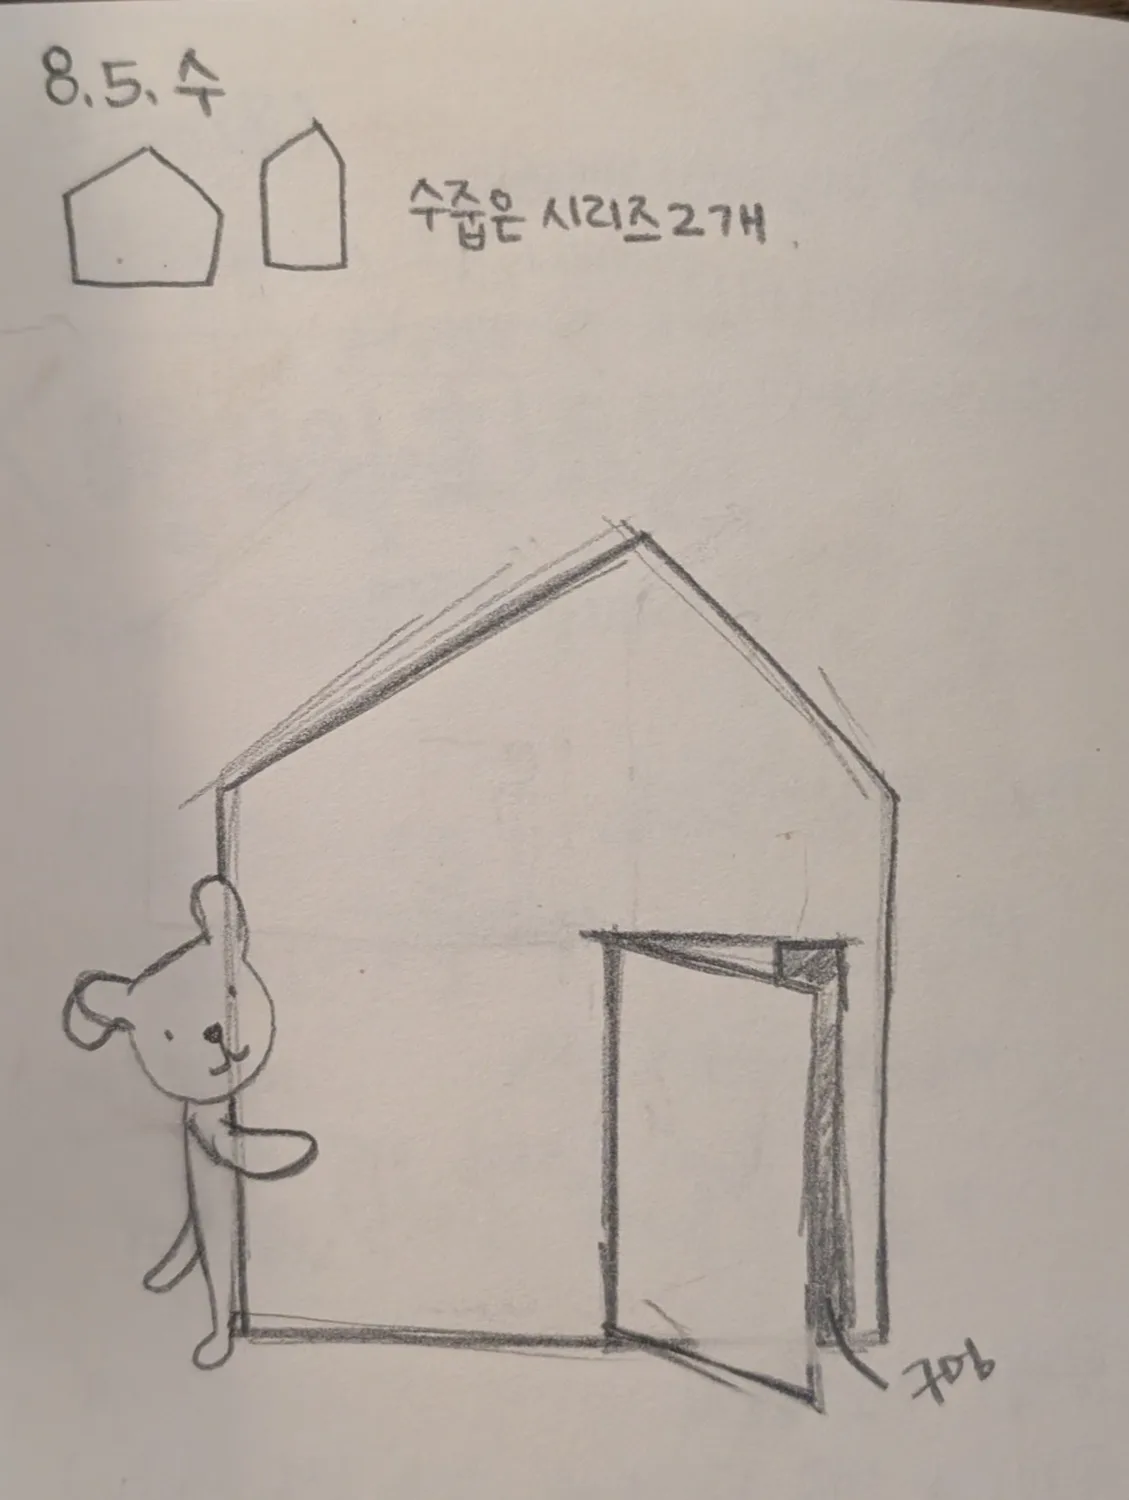 8.5.수
수줍은 시리즈 2개.